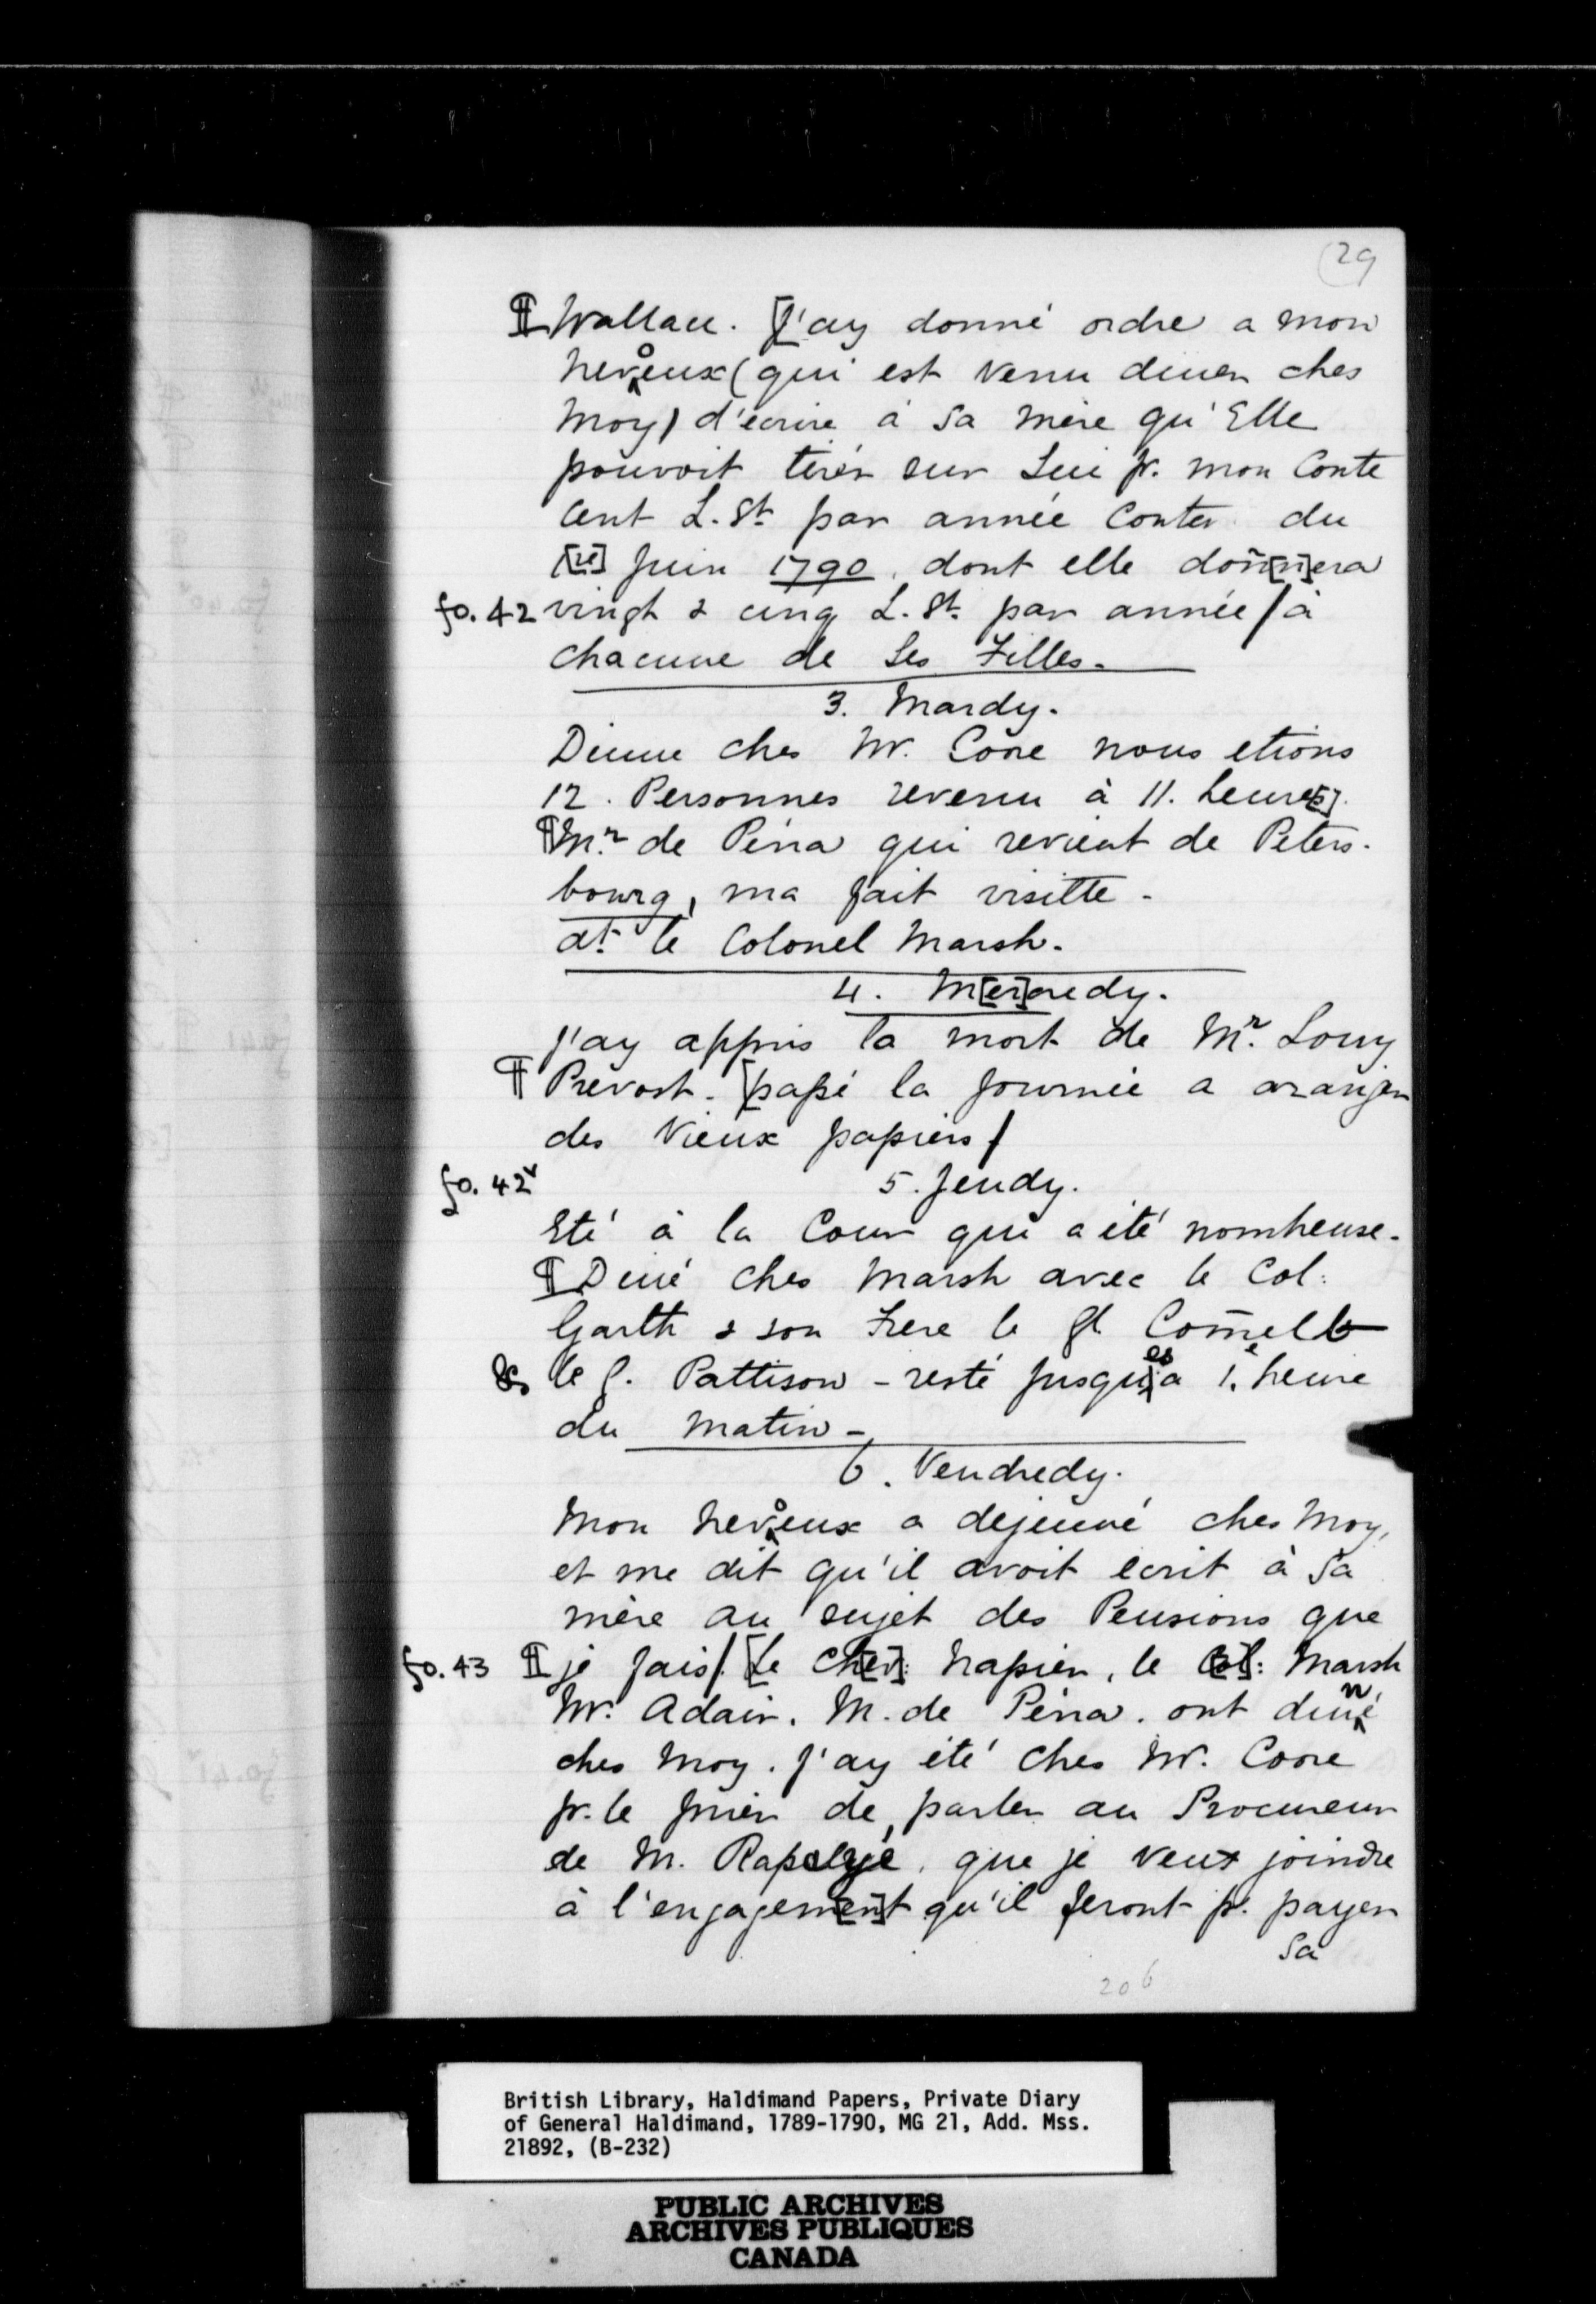 (29
¶ Wallace. [J'ay donné ordre a mon
neveoux (qui est venu diner ches
Moy) d'écrire à Sa mère qu'Elle
pouvoit tirér sur Lui pr. mon Conte
Cent L. St. par année Conter du
[re] Juin 1790, dont elle doñ[n]era
fo. 42 vingt & cinq L. St. par année / à
chacune de Ses Filles.
3. Mardy.
Dinne ches Mr. Coore nous etions
12. Personnes revenu à 11. heure[s].
¶ Mr. de Péna qui revient de Peters-
bourg, ma fait visitte -
dt. le Colonel Marsh.
4. M[er]credy.
J'ay appris la mort de Mr. Louy
¶ Prevost. [passé la journée a aranjer
des Vieux papiers /
fo. 42v 5. Jeudy.
Eté à la Cour qui a été nombreuse.
¶ Diné ches Marsh avec le Col:
Garth & son Frere le gl Coñell
& le g. Pattison - resté jusques a 1. heure
du Matin -
6. Vendredy.
Mon neveoux a dejeuné ches Moy,
et me dit qu'il avoit ecrit à Sa
mère au sujet des Pensions que
fo. 43 ¶ je fais /. [Le Che[v]: Napier, le Col: Marsh
Mr. Adair. M. de Péna. ont dinné
ches Moy. J'ay été ches Mr. Coore
pr. le prier de parler au Procureur
de M. Rapelyé, que je veux joindre
à l'engagem[en]t qu'il feront pr. payer
Sa
206
British Library, Haldimand Papers, Private Diary
of General Haldimand, 1789-1790, MG 21, Add. Mss.
21892, (B-232)
PUBLIC ARCHIVES
ARCHIVES PUBLIQUES
CANADA